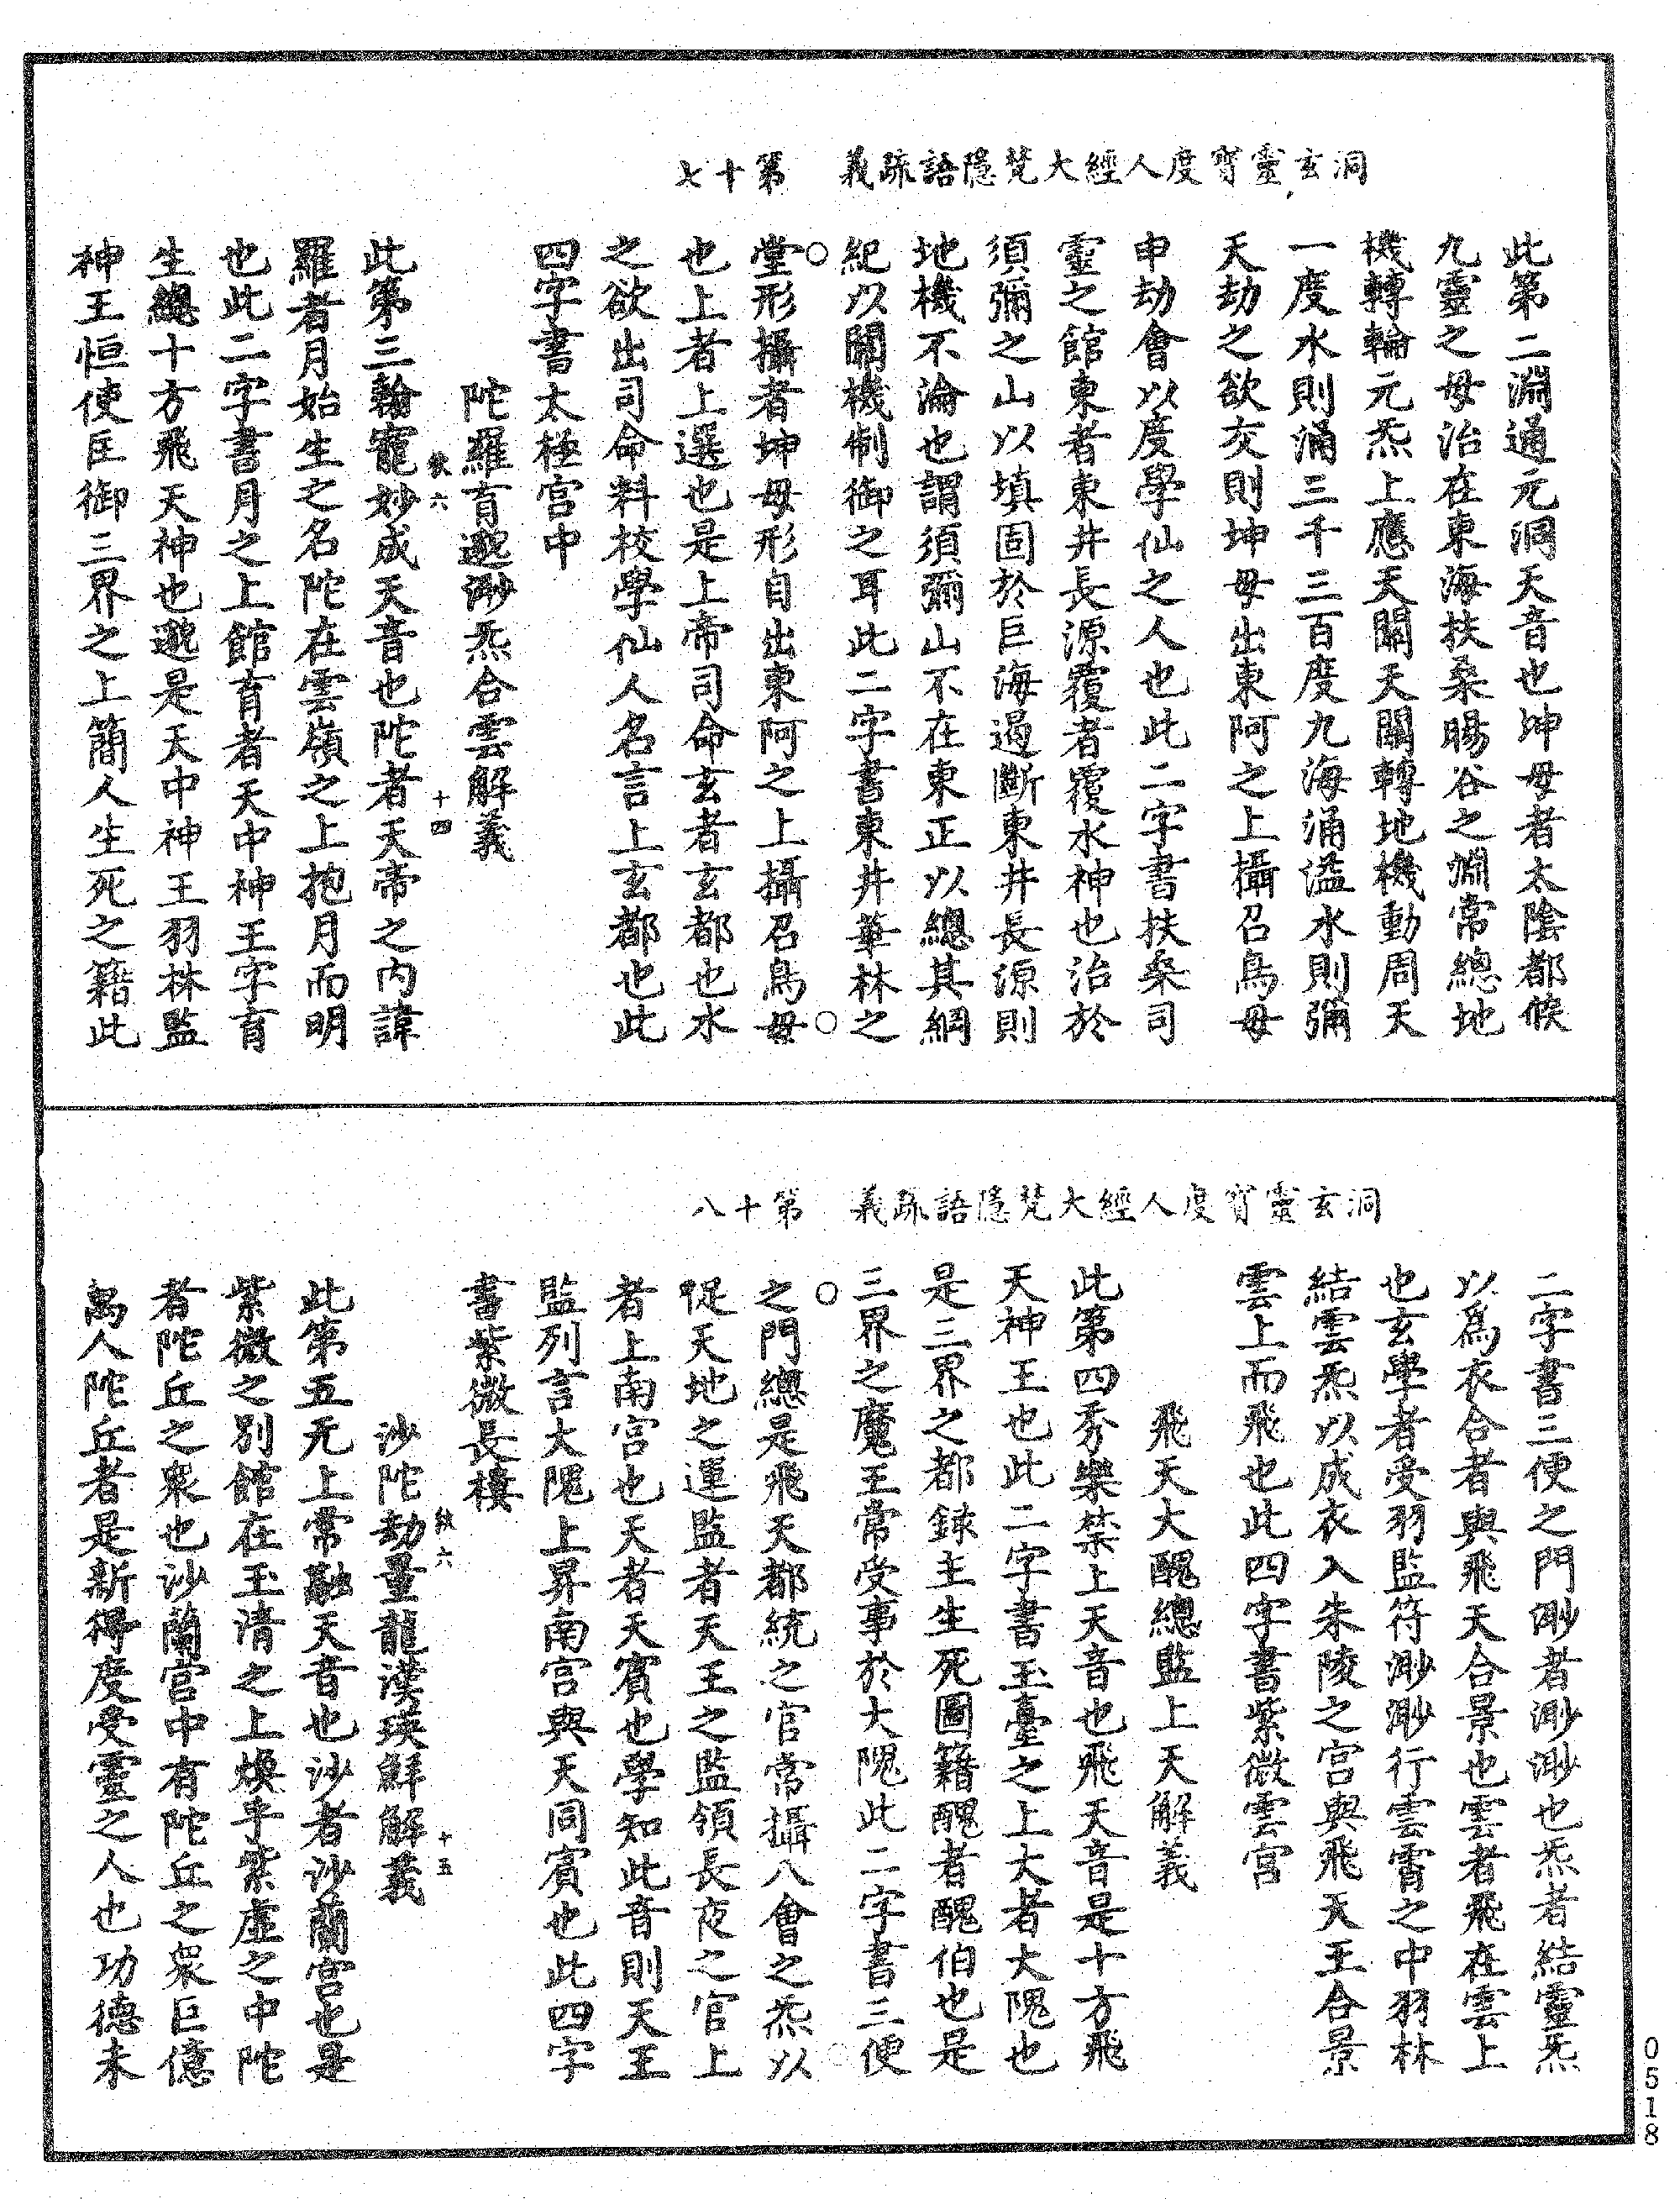 洞玄靈寶度人經大梵隱語疏義　第十七
此第二淵通元洞天音也坤母者太陰都候
九靈之母治在東海扶桑暘谷之淵常總地
機轉輪元炁上應天關天關轉地機動周天
一度水則涌三千三百度九海涌溢水則彌
天劫之欲交則坤母出東阿之上攝召鳥母
申劫會以度學仙之人也此二字書扶桑司
靈之館東者東井長源覆者覆水神也治於
須彌之山以填固於巨海遏斷東井長源則
地機不淪也謂須彌山不在東正以總其綱
紀以關機制御之耳此二字書東井華林之
堂形攝者坤母形自出東阿之上攝召鳥母
也上者上選也是上帝司命玄者玄都也水
之欲出司命料校學仙人名言上玄都也此
四字書太極宮中
陀羅育邈渺炁合雲解義
紩六　十四
此第三翰寵妙成天音也陀者天帝之內諱
羅者月始生之名陀在雲嶺之上抱月而明
也此二字書月之上館育者天中神王字育
生總十方飛天神也邈是天中神王羽林監
神王恒使匡御三界之上簡人生死之籍此
洞玄靈寶度人經大梵隱語疏義　第十八
二字書三便之門渺者渺渺也炁者結靈炁
以爲衣合者與飛天合景也雲者飛在雲上
也玄學者受羽監符渺渺行雲霄之中羽林
結雲炁以成衣入朱陵之宮與飛天王合景
雲上而飛也此四字書紫微雲宮
飛天大醜總監上天解義
此第四秀樂禁上天音也飛天音是十方飛
天神王也此二字書玉臺之上大者大隗也
是三界之都錄主生死圖籍醜者醜伯也是
三界之魔王常受事於大隗此二字書三便
之門總是飛天都統之官常攝八會之炁以
促天地之運監者天王之監領長夜之官上
者上南宮也天者天賓也學知此音則天王
監列言大隗上昇南宮與天同賓也此四字
書紫微長樓
沙陀劫量龍漢瑛鮮解義
紩六　十五
此第五无上常融天音也沙者沙蘭宮也是
紫微之別館在玉清之上煥乎紫虛之中陀
者陀丘之眾也沙蘭宮中有陀丘之眾巨億
萬人陀丘者是新得度受靈之人也功德未
0518